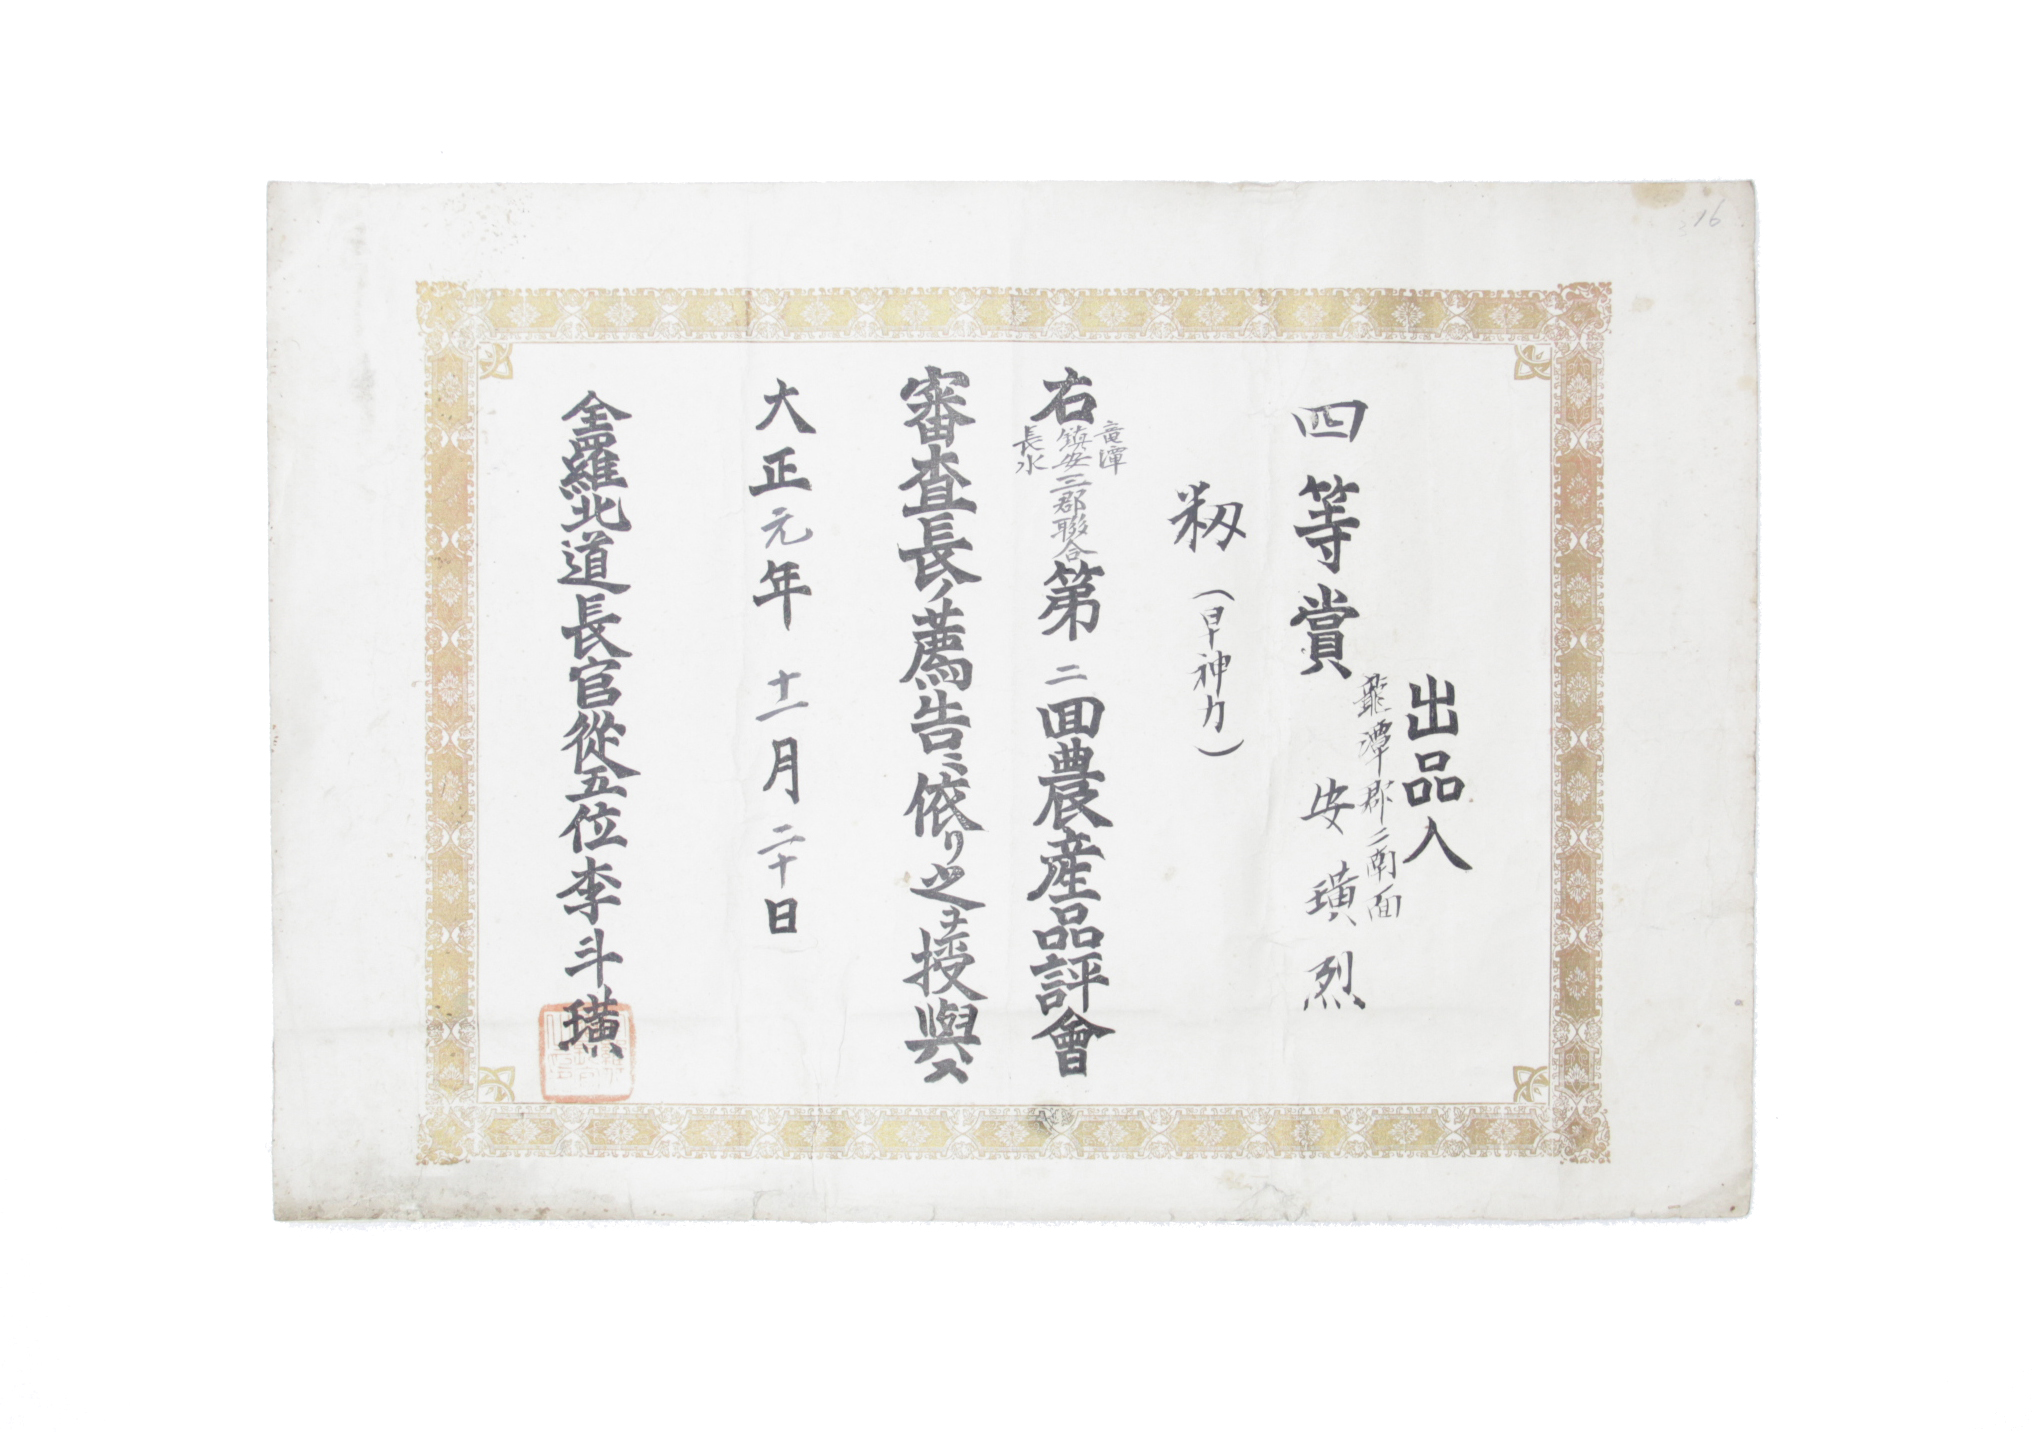 16
出品人
龍潭郡二南面
安璜烈
四等賞
籾
(早神力)
右
竜潭
鎮安三郡聯合
長水
第二回農産品評會
審査長ノ薦告ニ依リ之ヲ授與ス
大正元年十一月二十日
全羅北道長官從五位李斗璜